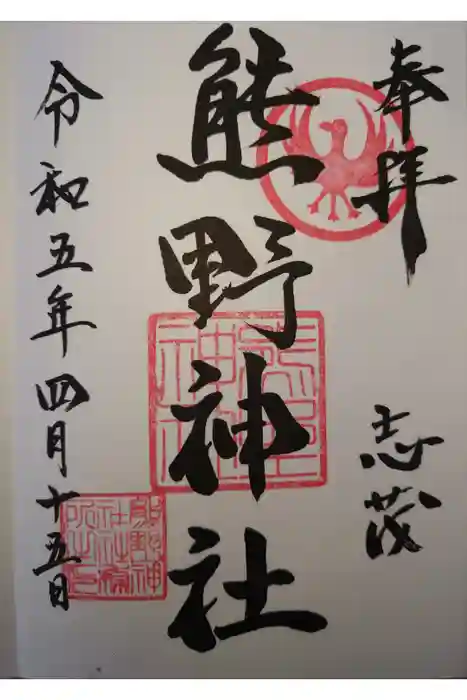 奉拝
志茂
熊野神社
令和五年四月十五日